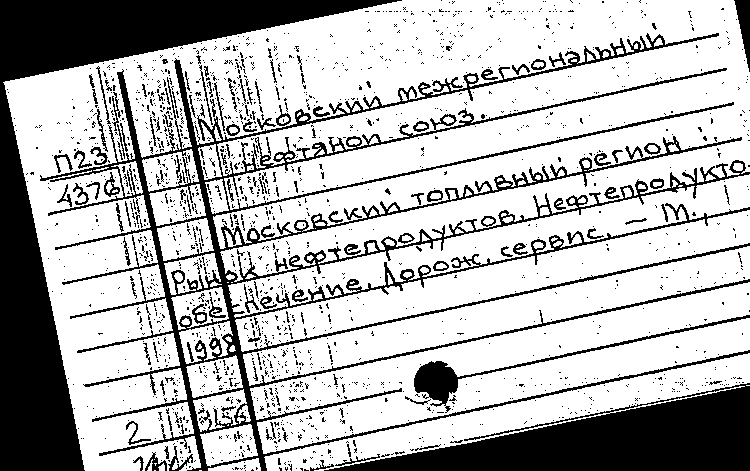 Московский межрегиональный
П23 нефтяной союз.
4376
Московский топливный регион :
Рынок нефтепродуктов. Нефтепродукто-
обеспечение. Дорож. сервис. — М.,
1998 -
2 3156